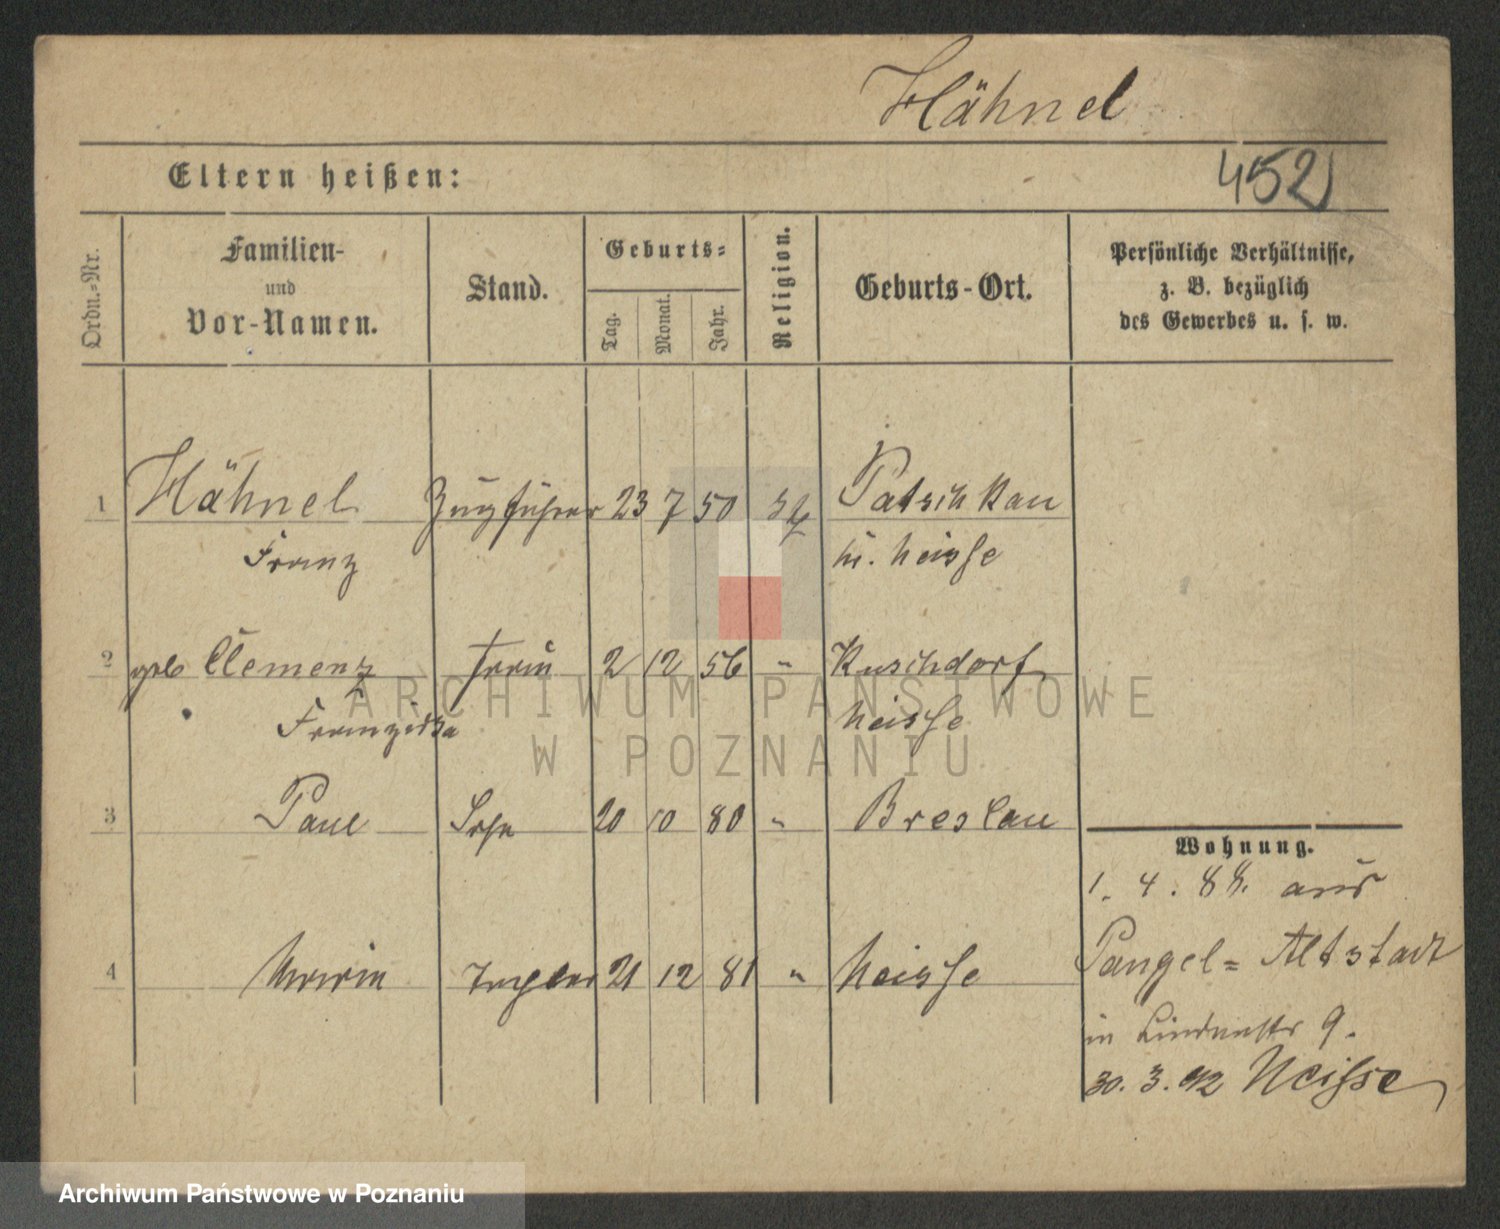 Hähnel
Eltern heißen:
452
Ordn.-Nr.
Familien-
und
Vor-Namen.
Stand.
Geburts-
Tag.
Monat.
Jahr.
Religion.
Geburts-Ort.
Persönliche Verhältnisse,
z. B. bezüglich
des Gewerbes u. s. w.
1 Hähnel Zugführer 23 7 50 Patschkau
Franz Neisse
2 geb Clemenz Frau 2 12 56 " Kuschdorf
Franziska Neisse
3 Paul Sohn 20 10 80 " Breslau
4 Tochter 21 12 81 " Neisse
Wohnung.
1. 4. 88. aus
Pangel-Altstadt
in Lindenstr 9.
30. 3. 92 Neisse
ARCHIWUM PAŃSTWOWE
W POZNANIU
Archiwum Państwowe w Poznaniu